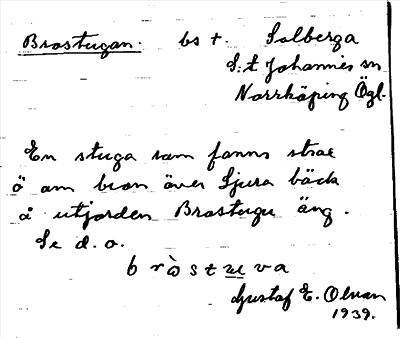 Brostugan. bs t. Solberga
S:t Johannis sn
Norrköping Ögl.
En stuga som fanns strax
ö om bron över Ljura bäck
å utjorden Brostugu äng.
Se d. o.
b r ò s t u v a
Gustaf E. Olsson
1939.